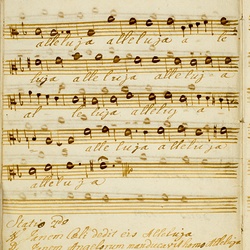 alleluja alleluja a le
luja alle luja alleluj a
al le luja allelu j a
alleluja alleluj a
alleluj a
Statio 2do
Panem Cæli dedit eis Alleluja
Panem Angelorum manducavit homo Alleluja